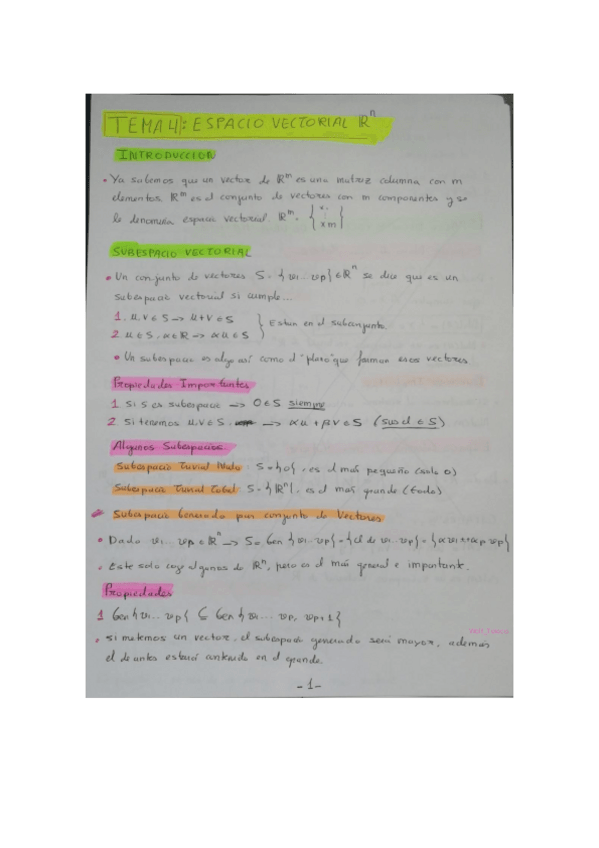 TEMA 4: ESPACIO VECTORIAL ℝⁿ
INTRODUCCION
• Ya sabemos que un vector de ℝᵐ es una matriz columna con m
elementos. ℝᵐ es el conjunto de vectores con m componentes y se
le denomina espacio vectorial. ℝᵐ = { x₁ ⋮ xm }
SUBESPACIO VECTORIAL
• Un conjunto de vectores S = {v1 ... vp} ∈ ℝⁿ se dice que es un
subespacio vectorial si cumple...
1. u, v ∈ S -> u + v ∈ S
2. u ∈ S, α ∈ ℝ -> αu ∈ S } Estan en el subconjunto.
• Un subespacio es algo así como el "plano" que forman esos vectores
Propiedades Importantes
1 Si S es subespacio -> 0 ∈ S siempre
2. Si tenemos u, v ∈ S -> αu + βv ∈ S (sus cl ∈ S)
Algunos Subespacios
Subespacio Trivial Nulo: S = {0}, es el más pequeño (solo 0)
Subespacio Trivial Total: S = {ℝⁿ}, es el más grande (todo)
Subespacio Generado por conjunto de Vectores
• Dado v1 ... vp ∈ ℝⁿ -> S = Gen {v1 ... vp} = {cl de v1 ... vp} = {αv1 + αp vp}
• Este solo coge algunos de ℝⁿ, pero es el más general e importante.
Propiedades
1 Gen {v1 ... vp} ⊆ Gen {v1 ... vp, vp+1}
• Si metemos un vector, el subespacio generado será mayor, además
el de antes estará contenido en el grande.
- 1 -